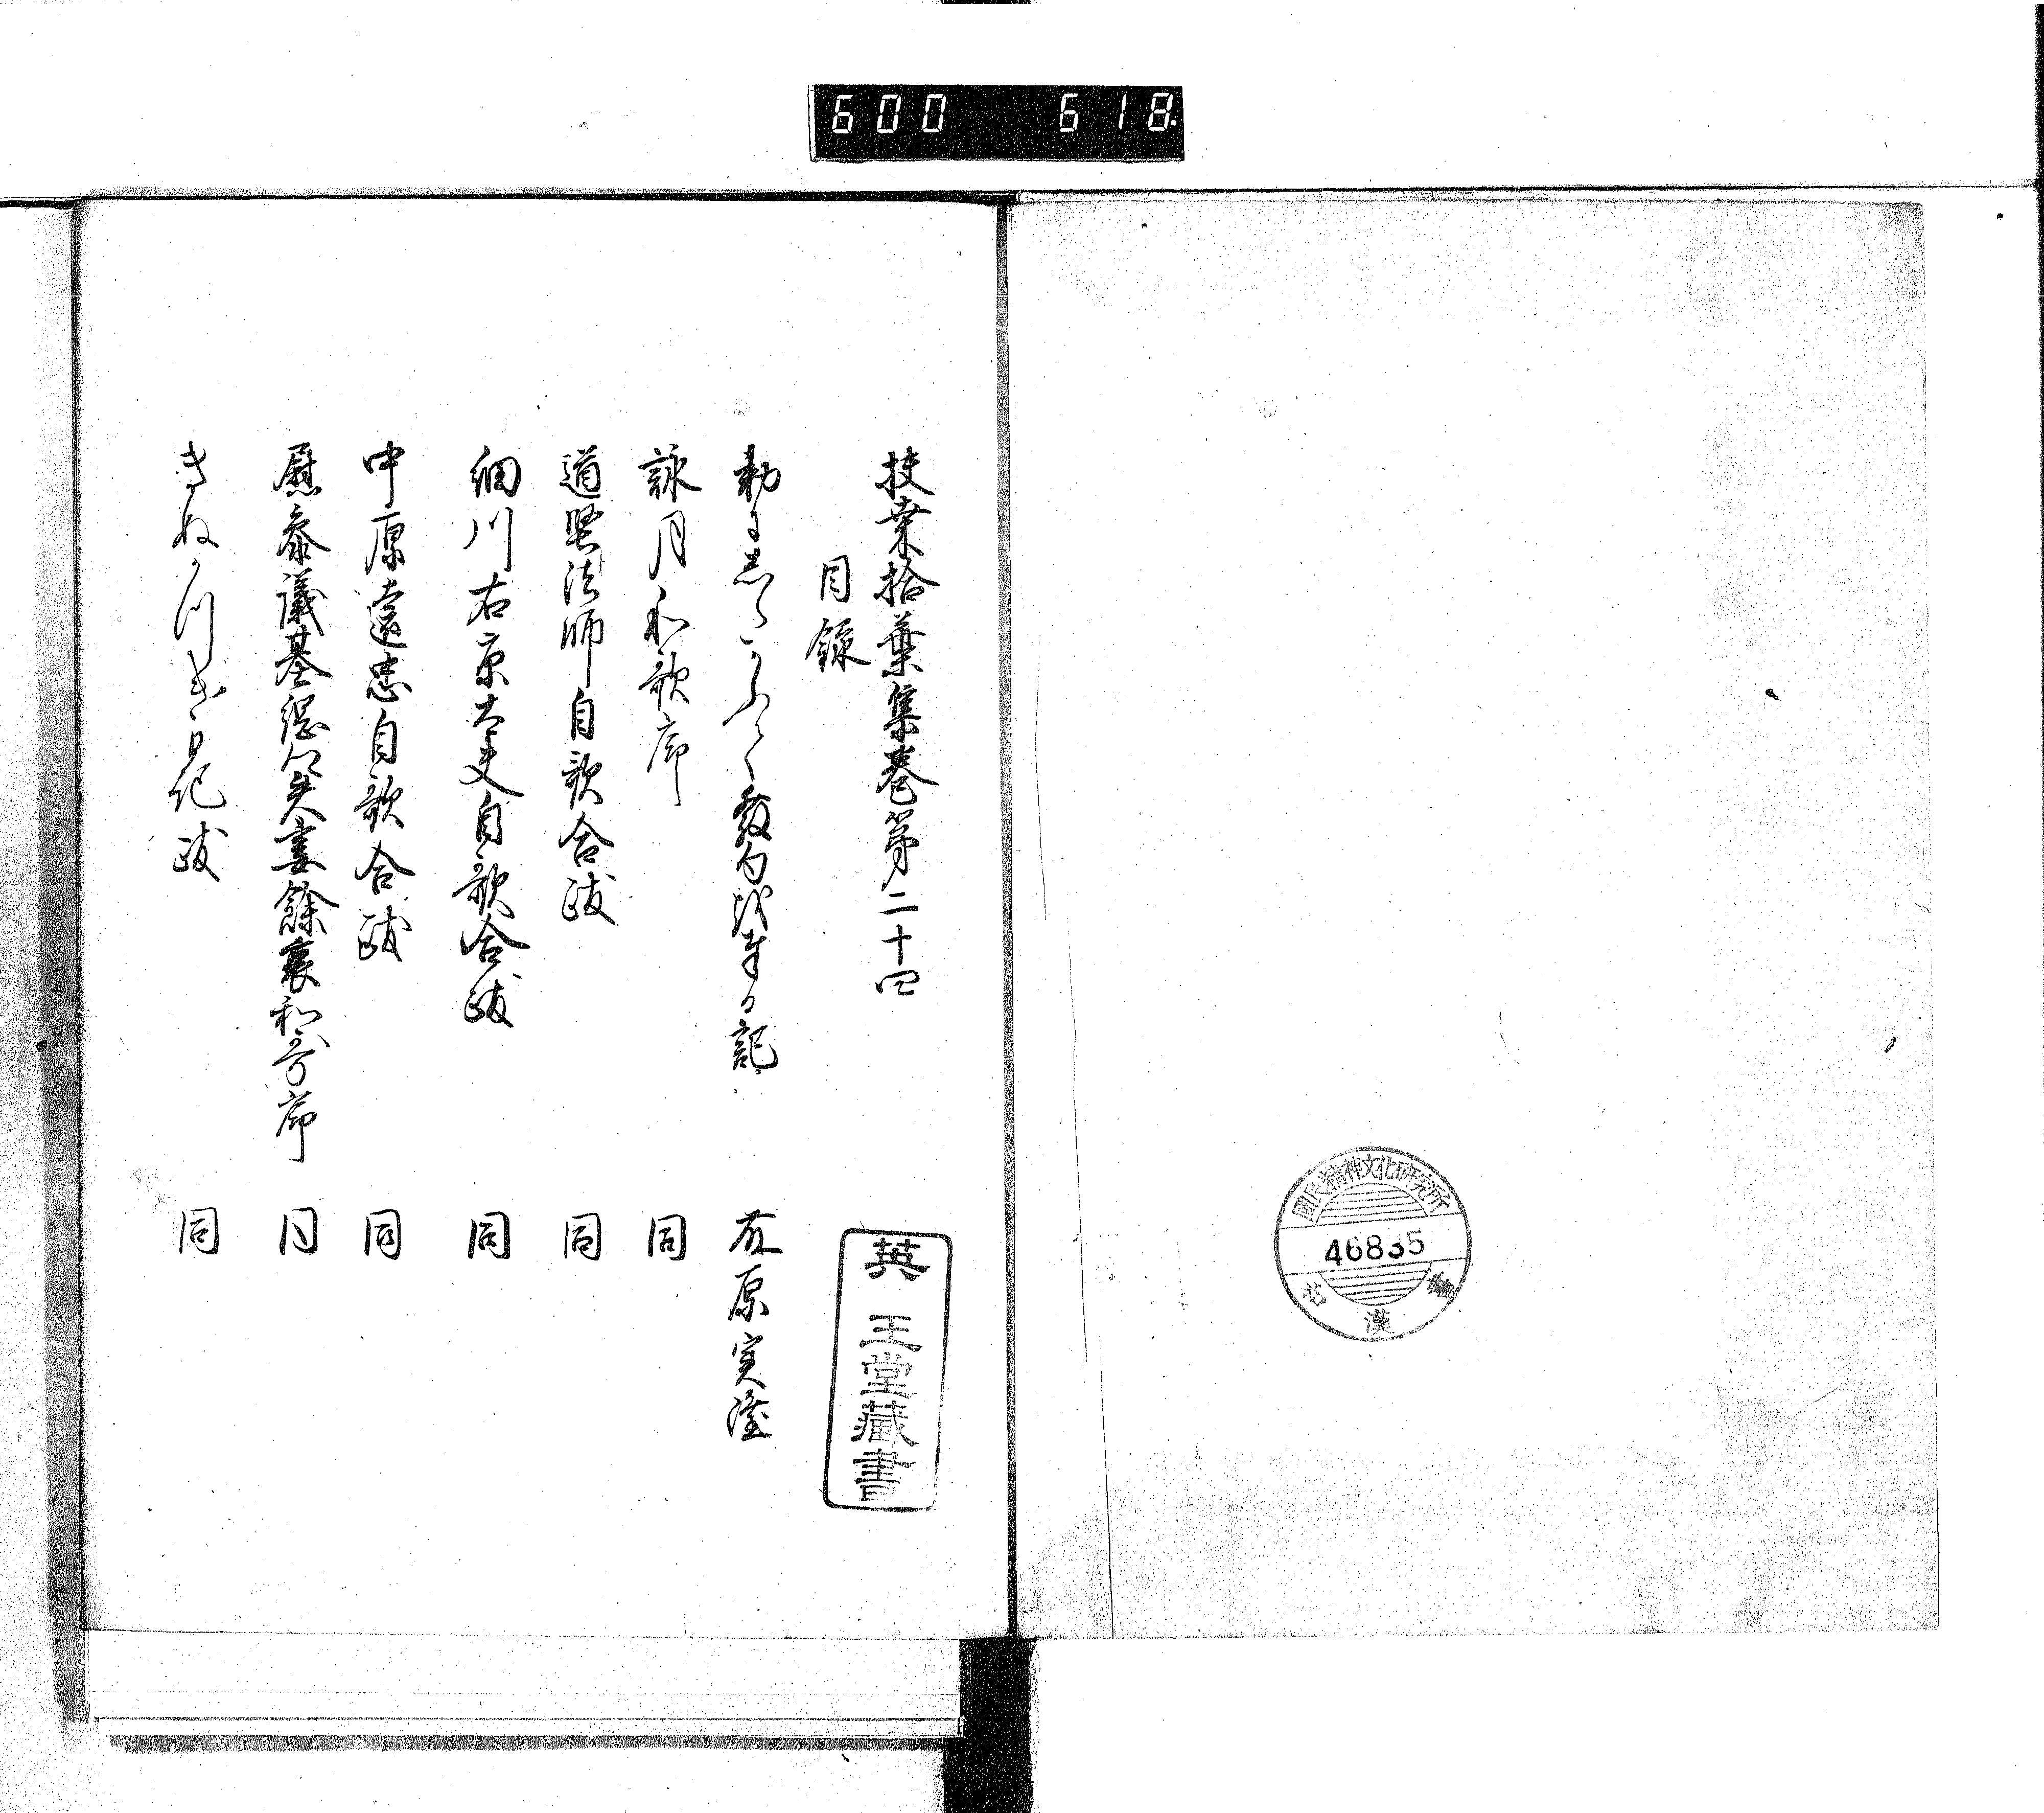 600 618.
國民精神文化研究所
46835
漢
扶桑拾葉集巻第二十四
目録
記 藤原実隆
詠月和歌序 同
道堅法師自歌合跋 同
細川右京大夫自歌合跋 同
中原遠忠自歌合跋 同
慰参議基綱卿失妻餘哀和哥序 同
きぬかつき日記跋 同
英 王堂藏書